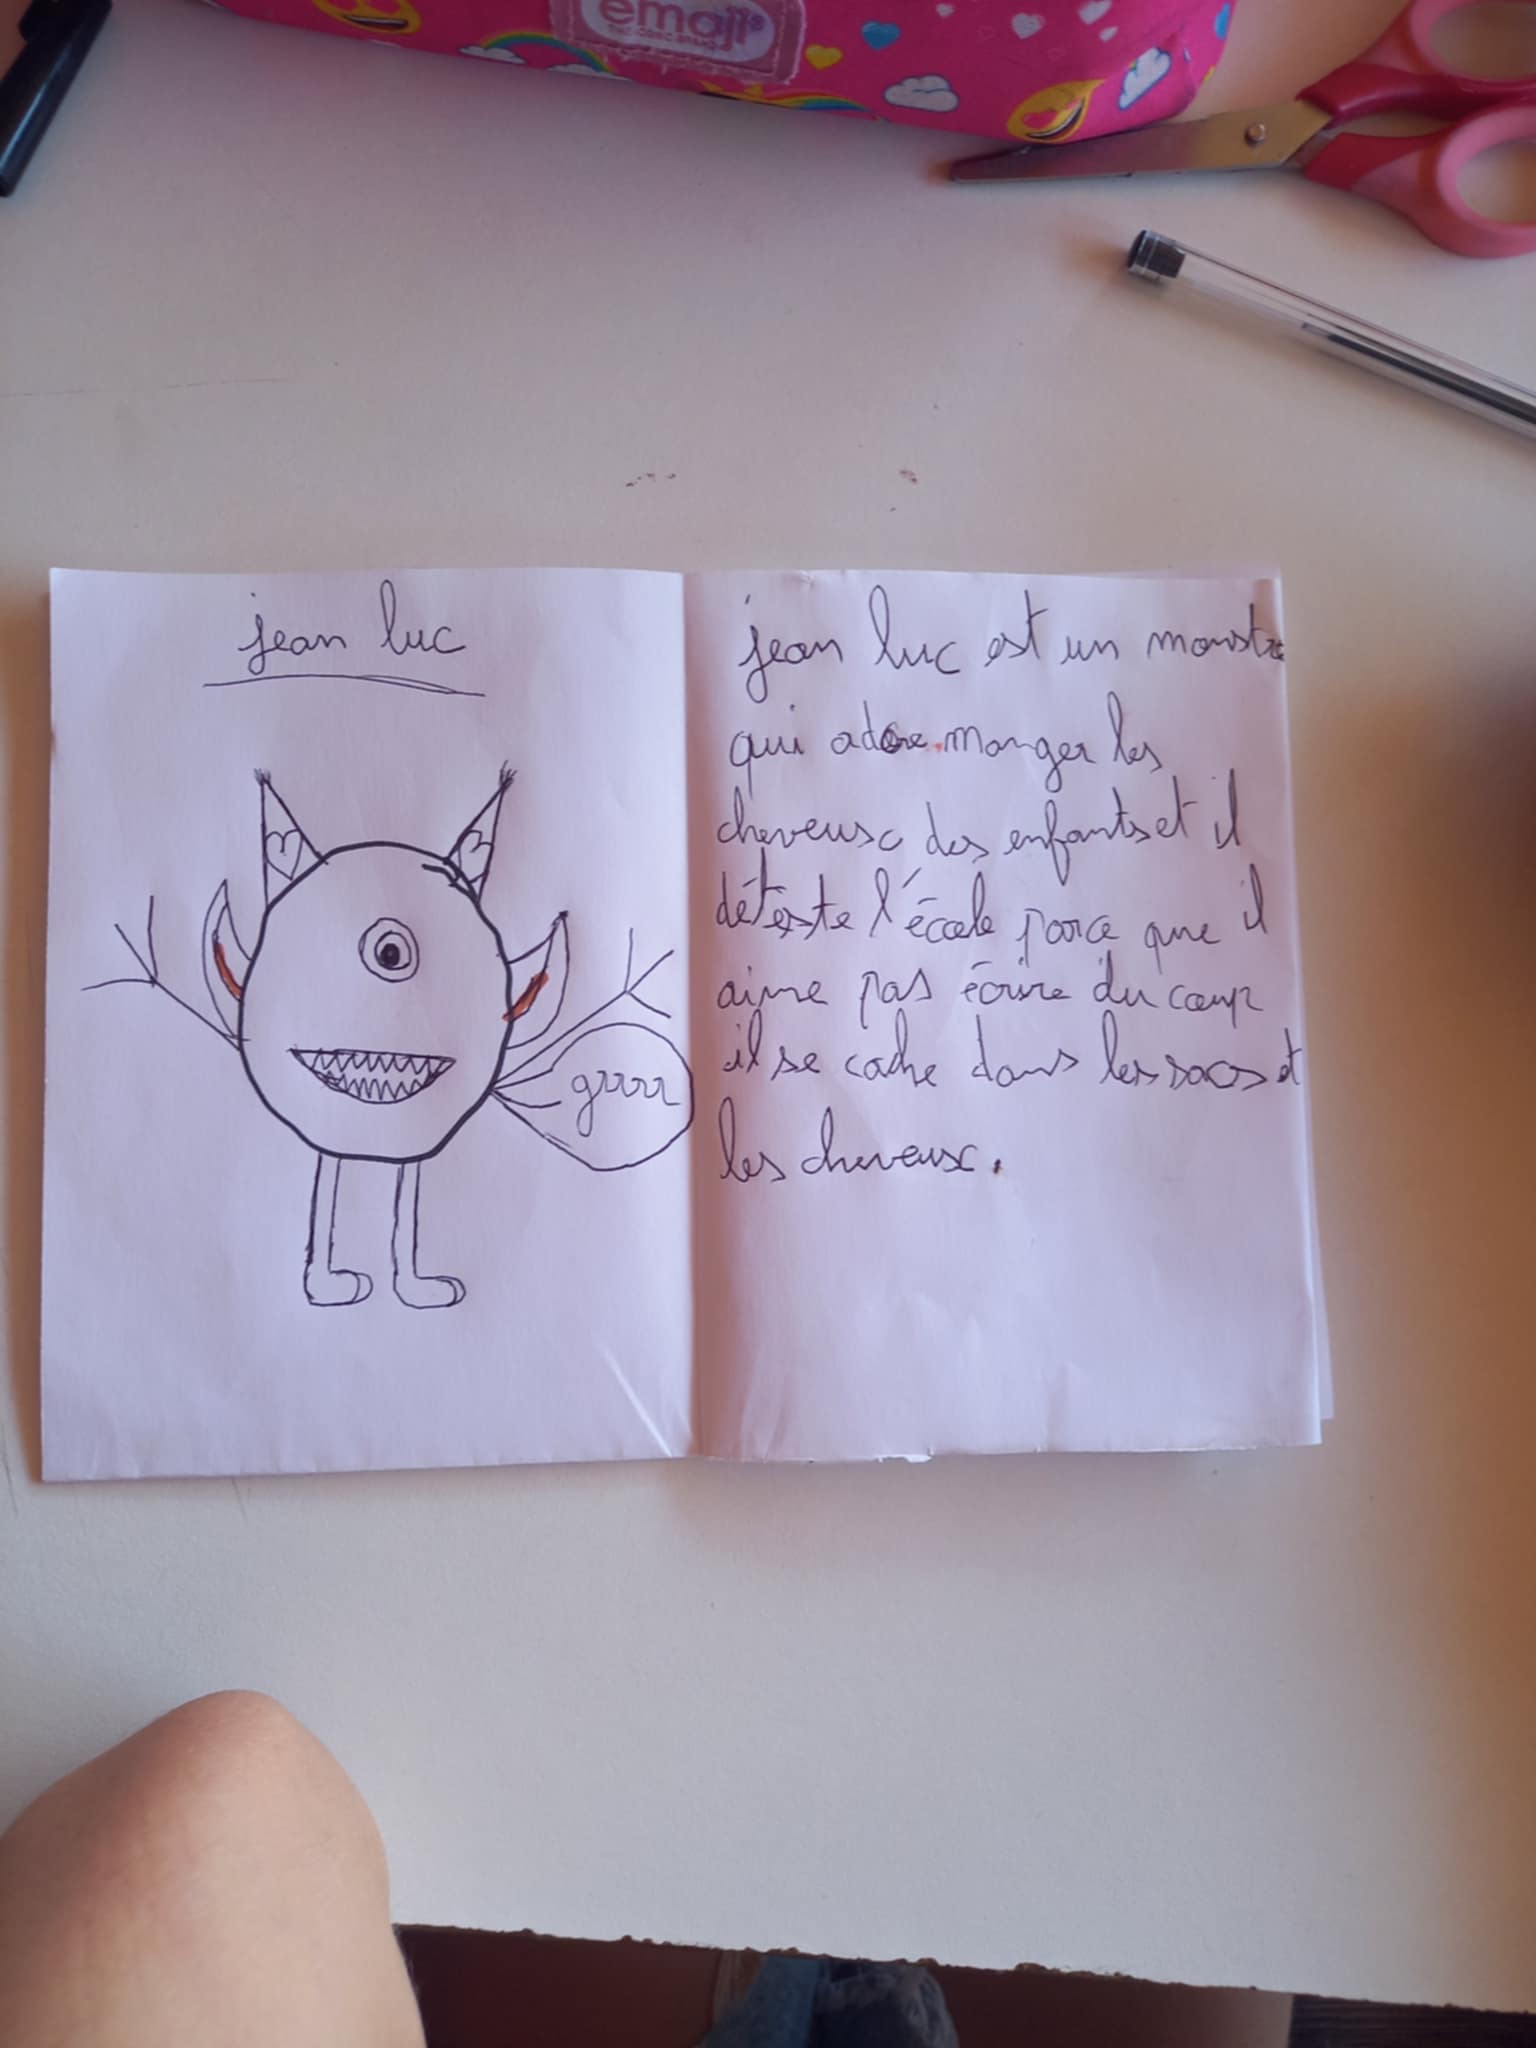 emoji
jean luc
grrrr
jean luc est un monstre
qui adore manger les
cheveux des enfants et il
déteste l'école parce que il
aime pas écrire du coup
il se cache dans les sacs et
les cheveux.